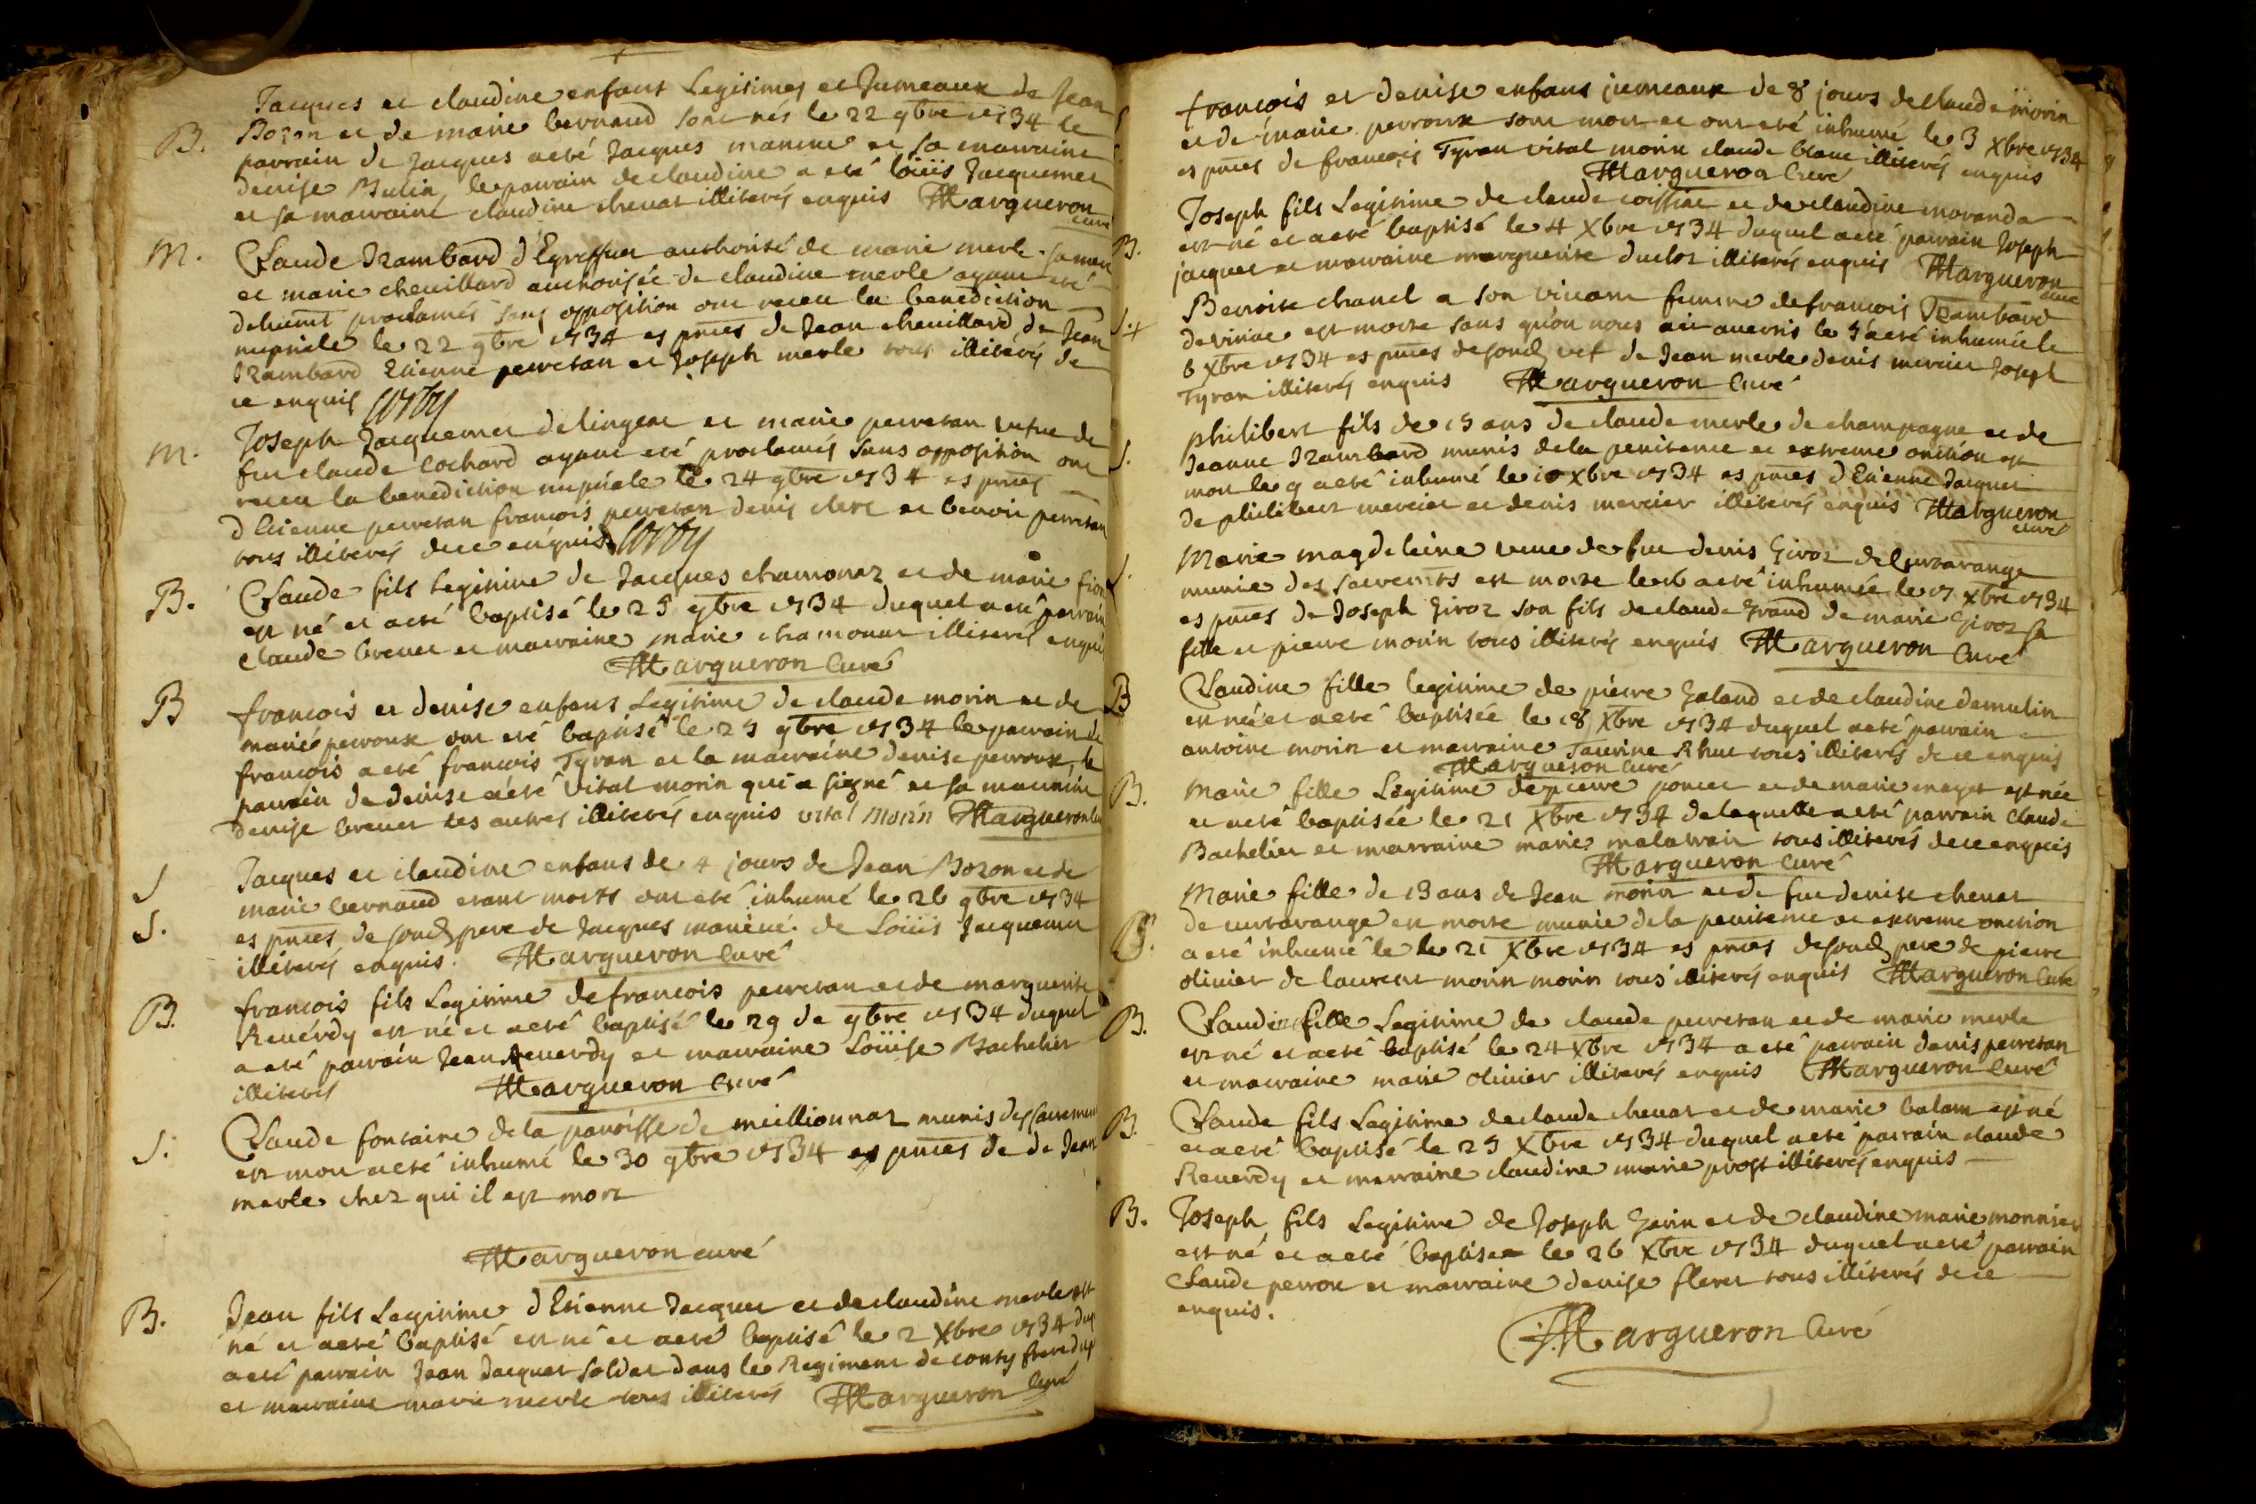 Jacques et claudine enfant Legitimes et Jumeaux de Jean
B. Bozon et de marie bernaud sont nés le 22 9bre 1734 le
parrain de Jacques a eté Jacques et sa marraine
denise le parrain de claudine a eté loüis Jacquemet
et sa marraine claudine chenat illiterés enquis Margueron
curé
M. Claude Trambard d' authorité de marie merle sa mere
et marie chevillard authorisée de claudine merle ayant eté
duement proclamés sans opposition ont receu la benediction
nuptiale le 22 9bre 1734 es pnces de Jean chevillard de Jean
Trambard Etienne perretan et Joseph merle tous illiterés de
ce enquis
M. Joseph Jacquemet de lingeat et marie perretan vefve de
feu claude cochard ayant eté proclamés sans opposition ont
receu la benediction nuptiale le 24 9bre 1734 es pnces
d'Etienne perretan francois perretan denis clerc et benoit perretan
tous illiterés de ce enquis
B. Claude fils legitime de Jacques chamonaz et de marie
est né et a eté baptisé le 25 9bre 1734 duquel a eté parrain
claude brevet et marraine marie chamonaz illiterés enquis
Margueron Curé
B francois et denise enfans Legitime de claude morin et de
marie perroux ont eté baptisé le 25 9bre 1734 le parrain de
francois a eté francois Tyran et la marraine denise perroux, le
parrain de denise a eté vital morin qui a signé et sa marraine
denise brevet les autres illiterés enquis vital Morin Margueron
S Jacques et claudine enfans de 4 jours de Jean Bozon et de
marie bernaud etant morts ont eté inhumé le 26 9bre 1734
S. es pnces de pere de Jacques de Loüis Jacquemet
illiterés enquis. Margueron Curé
B. francois fils Legitime de francois perretan et de marguerite
Reverdy est né et a eté baptisé le 29 de 9bre 1734 duquel
a eté parrain Jean Reverdy et marraine Loüise Bachelier
illiterés Margueron Curé
S. Claude fontaine de la parroisse de meillionnaz munis des sacremens
est mort a eté inhumé le 30 9bre 1734 es pnces de de Jean
merle chez qui il est mort
Margueron curé
B. Jean fils Legitime d'Etienne Jacquet et de claudine merle est
né et a eté baptisé est né et a eté baptisé le 2 Xbre 1734
a eté parrain Jean Jacquet soldat dans le Regiment de conty frere
et marraine marie merle tous illiterés Margueron Curé
francois et denise enfans jumeaux de 8 jours de claude morin
et de marie perroux sont mort et ont eté inhumé le 3 Xbre 1734
es pnces de francois Tyran vital morin claude blanc illiterés enquis
Margueron Curé
B. Joseph fils Legitime de claude et de claudine
est né et a eté baptisé le 4 Xbre 1734 duquel a eté parrain Joseph
jacquet et marraine marguerite duclos illiterés enquis Margueron
curé
S. Benoite chanel a son vivant femme de francois Trambard
est morte sans qu'on nous ait avertis le 5 a eté inhumée le
6 Xbre 1734 es pnces de de Jean merle denis mercier Joseph
Tyran illiterés enquis Margueron Curé
S. philibert fils de 15 ans de claude merle de champagne et de
Jeanne Trambard munis de la penitence et extreme onction est
mort le 9 a eté inhumé le 10 Xbre 1734 es pnces d'Etienne Jacquet
de philibert mercier et denis mercier illiterés enquis Margueron
curé
Marie magdeleine veuve de feu denis Giroz de
munie des sacremts est morte le 16 a eté inhumée le 17 Xbre 1734
es pnces de Joseph Giroz son fils de claude Grand de marie Giroz sa
fille et pierre morin tous illiterés enquis Margueron Curé
B Claudine fille legitime de pierre Galand et de claudine demulin
est née et a eté baptisée le 18 Xbre 1734 duquel a eté parrain
antoine morin et marraine Taurine tous illiterés de ce enquis
Margueron Curé
B. Marie fille Legitime de pierre poncet et de marie est née
et a eté baptisée le 21 Xbre 1734 de laquelle a eté parrain Claude
Bachelier et marraine marie tous illiterés de ce enquis
Margueron Curé
S. Marie fille de 13 ans de Jean morin et de feu denise chenat
de est morte munie de la penitence et extreme onction
a eté inhumé le le 21 Xbre 1734 es pnces de pere de pierre
olivier de laurent morin morin tous illiterés enquis Margueron Curé
B. Claudine fille Legitime de claude perretan et de marie merle
est né et a eté baptisé le 24 Xbre 1734 a eté parrain denis perretan
et marraine marie olivier illiterés enquis Margueron Curé
B. Claude fils Legitime de claude chenat et de marie balam est né
et a eté baptisé le 25 Xbre 1734 duquel a eté parrain claude
Reverdy et marraine claudine marie prost illiterés enquis
B. Joseph fils Legitime de Joseph Gavin et de claudine marie monnier
est né et a eté baptisé le 26 Xbre 1734 duquel a eté parrain
Claude perrou et marraine denise tous illiterés de ce
enquis.
Margueron Curé